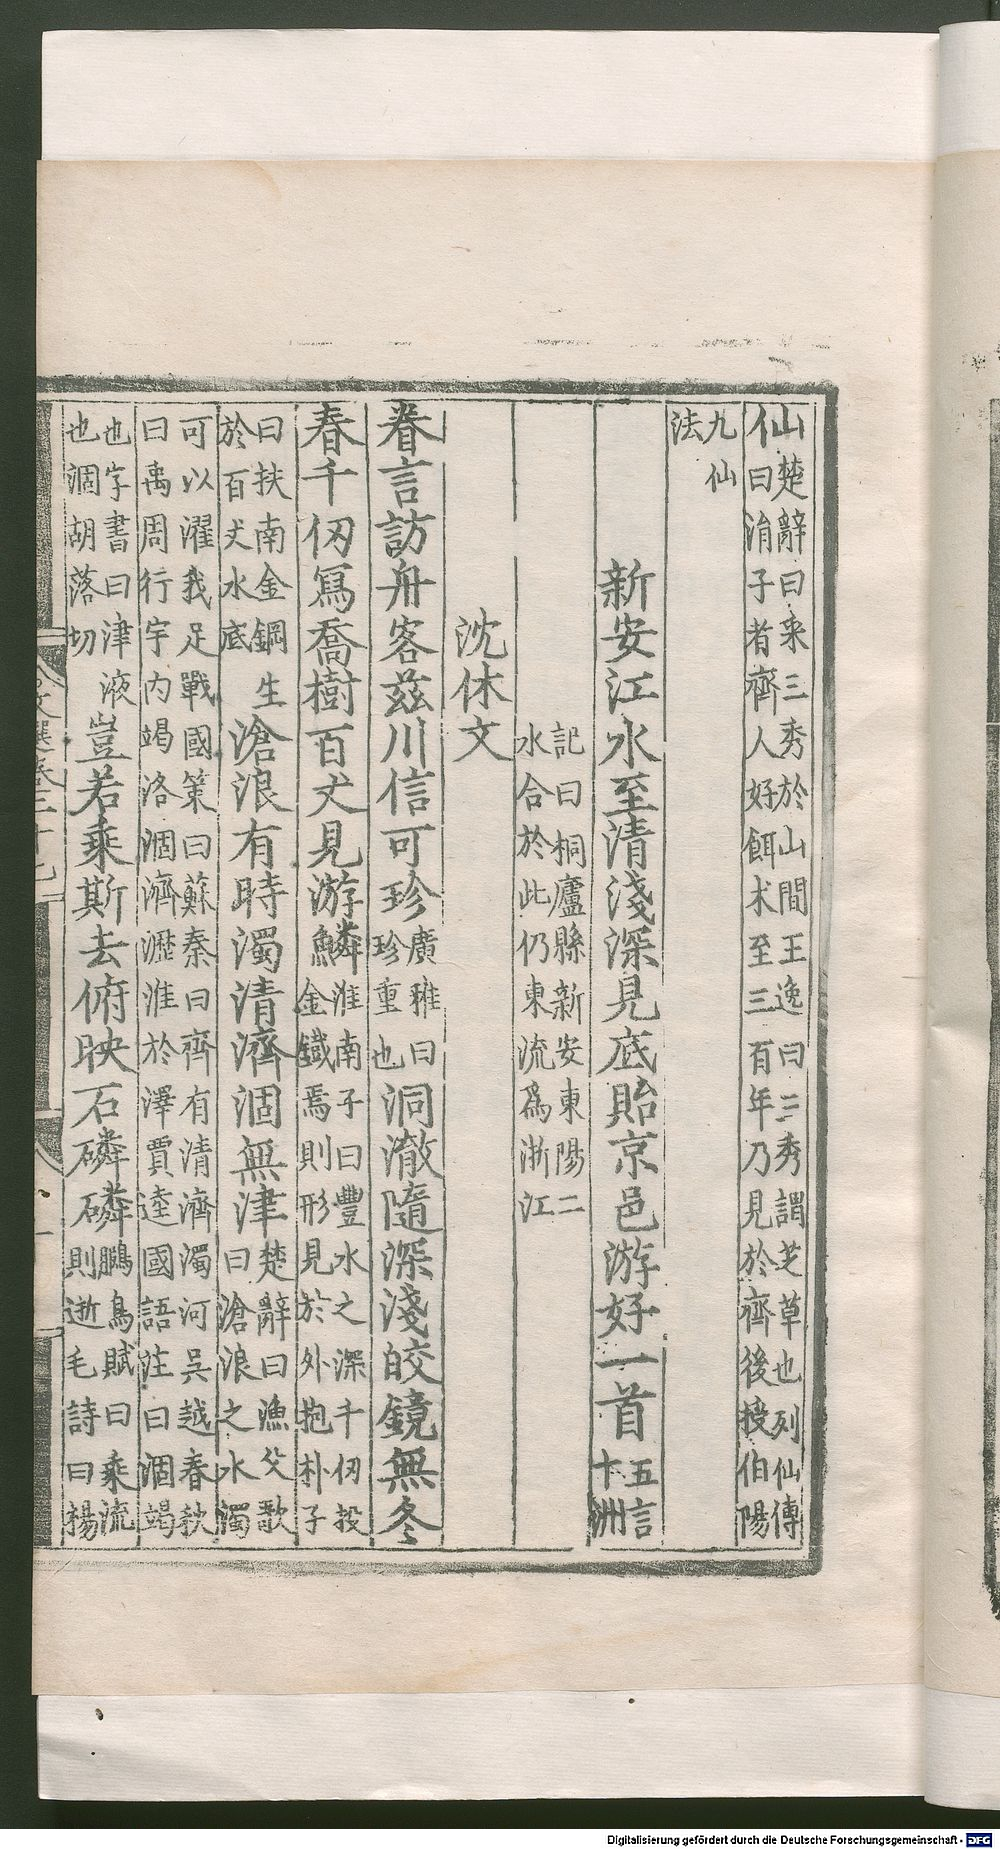 仙楚辭曰采三秀於山間王逸曰三秀謂芝草也列仙傳
曰涓子者齊人好餌术至三百年乃見於齊後授伯陽
九仙
法
新安江水至清淺深見底貽京邑游好一首五言
十洲
記曰桐廬縣新安東陽二
水合於此仍東流爲浙江
沈休文
眷言訪舟客茲川信可珍廣雅曰
珍重也
洞澈隨深淺皎鏡無冬
春千仞寫喬樹百丈見游鱗淮南子曰豐水之深千仞投
金鐵焉則形見於外抱朴子
曰扶南金鋼生
於百丈水底
滄浪有時濁清濟涸無津楚辭曰漁父歌
曰滄浪之水濁
可以濯我足戰國策曰蘇秦曰齊有清濟濁河吳越春秋
曰禹周行宇內竭洛涸濟瀝淮於澤賈逵國語注曰涸竭
也字書曰津液
也涸胡落切
豈若乘斯去俯映石磷磷鵩鳥賦曰乘流
則逝毛詩曰揚
文選卷二十七
Digitalisierung gefördert durch die Deutsche Forschungsgemeinschaft - DFG